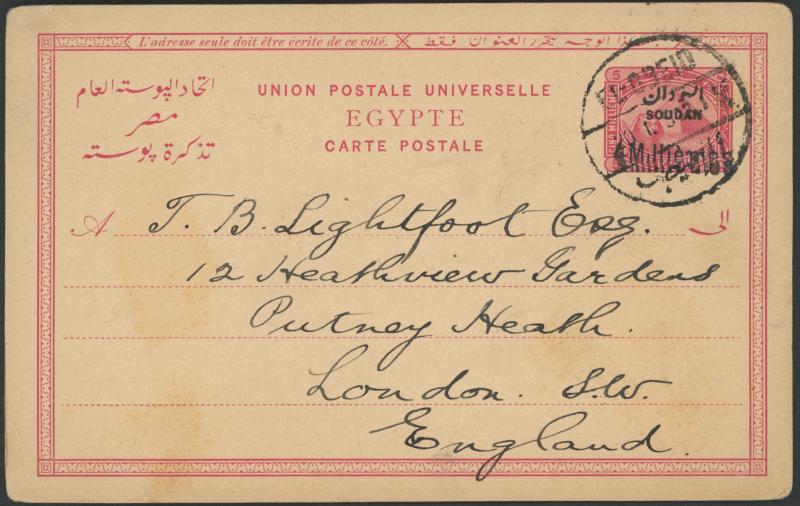 L'adresse seule doit être écrite de ce côté. هذا الوجه يتحرر العنوان فقط
اتحاد البوسته العام
مصر
تذكرة بوسته
UNION POSTALE UNIVERSELLE
EGYPTE
CARTE POSTALE
EL-OBEID
السودان
SOUDAN
4 Millièmes
5
A T. B. Lightfoot Esq. الى
12 Heathview Gardens
Putney Heath.
London. S.W.
England.